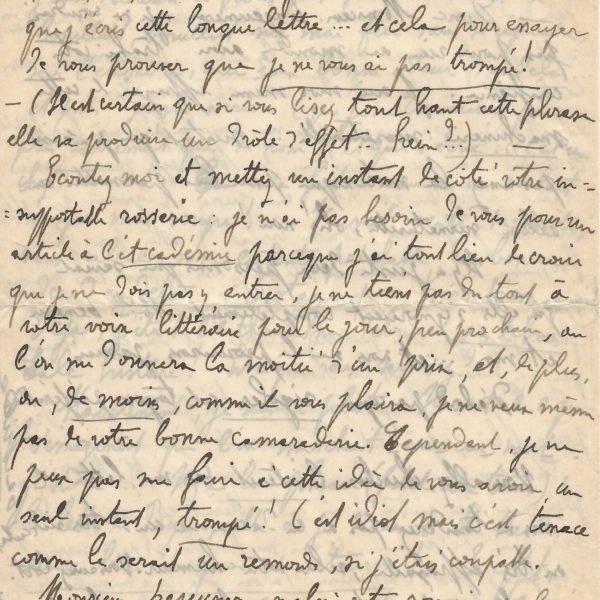 que j'écris cette longue lettre... et cela pour essayer
de vous prouver que je ne vous ai pas trompé!
— (Il est certain que si vous lisez tout haut cette phrase
elle va produire un drôle d'effet.. hein?...) —
Ecoutez moi et mettez un instant de côté votre in-
=supportable rosserie: je n'ai pas besoin de vous pour un
article à l'Académie parceque j'ai tout lieu de croire
que je ne dois pas y entrer, je ne tiens pas du tout à
votre voix littéraire pour le jour, peu prochain, où
l'on me donnera la moitié d'un prix, et, de plus,
ou, de moins, comme il vous plaira, je ne veux même
pas de votre bonne camaraderie. Cependant, je ne
peux pas me faire à cette idée de vous avoir, un
seul instant, trompé! C'est idiot mais c'est tenace
comme le serait un remords, si j'étais coupable.
Monsieur